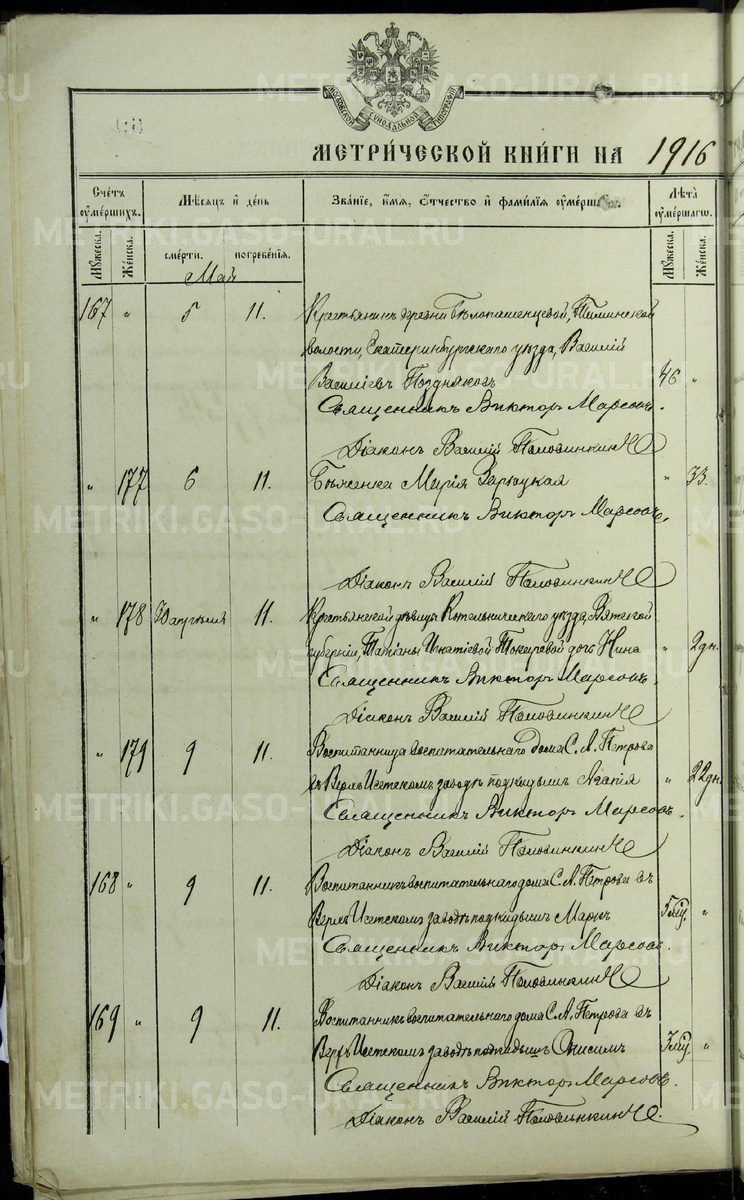 МОСКОВСКОЙ СИНОДАЛЬНОЙ ТИПОГРАФІИ
МЕТРИ́ЧЕСКОЙ КНИ́ГИ НА 1916
Сче́тъ ѹме́ршихъ. Мѣ́сяцъ и де́нь Зва́ніе, и́мя, о́тчество и фами́лія ѹме́рш Лѣ́та ѹме́ршагѡ.
Мꙋ́жеска. Же́нска. сме́рти. погребе́нія. Мꙋ́жеска. Же́нска.
Май
167 " 5 11. Крестьянинъ деревни Бѣлопашенцевой, Тиминской
волости, Екатеринбургскаго уѣзда, Василій
Василіевъ Поздняковъ 46 "
Священникъ Викторъ Марсовъ.
Діаконъ Василій Половинкинъ
" 177 6 11. Бѣженка Марія Зарюцкая " 33.
Священникъ Викторъ Марсовъ.
Діаконъ Василій Половинкинъ
" 178 30 апрѣля 11. Крестьянской дѣвицы Котельническаго уѣзда, Вятской
губерніи, Татіаны Игнатіевой дочь Нина " 2 дн.
Священникъ Викторъ Марсовъ.
Діаконъ Василій Половинкинъ
" 179 9 11. Воспитанница воспитательнаго дома С. А. Петрова
въ Верхъ Исетскомъ заводѣ подкидышъ Агапія " 22 дн.
Священникъ Викторъ Марсовъ.
Діаконъ Василій Половинкинъ
168 " 9 11. Воспитанникъ воспитательнаго дома С. А. Петрова въ
Верхъ Исетскомъ заводѣ подкидышъ Маркъ 5 мѣс. "
Священникъ Викторъ Марсовъ.
Діаконъ Василій Половинкинъ
169 " 9 11. Воспитанникъ воспитательнаго дома С. А. Петрова въ
Верхъ Исетскомъ заводѣ подкидышъ Онисимъ 3 мѣс. "
Священникъ Викторъ Марсовъ.
Діаконъ Василій Половинкинъ.
METRIKI.GASO-URAL.RU